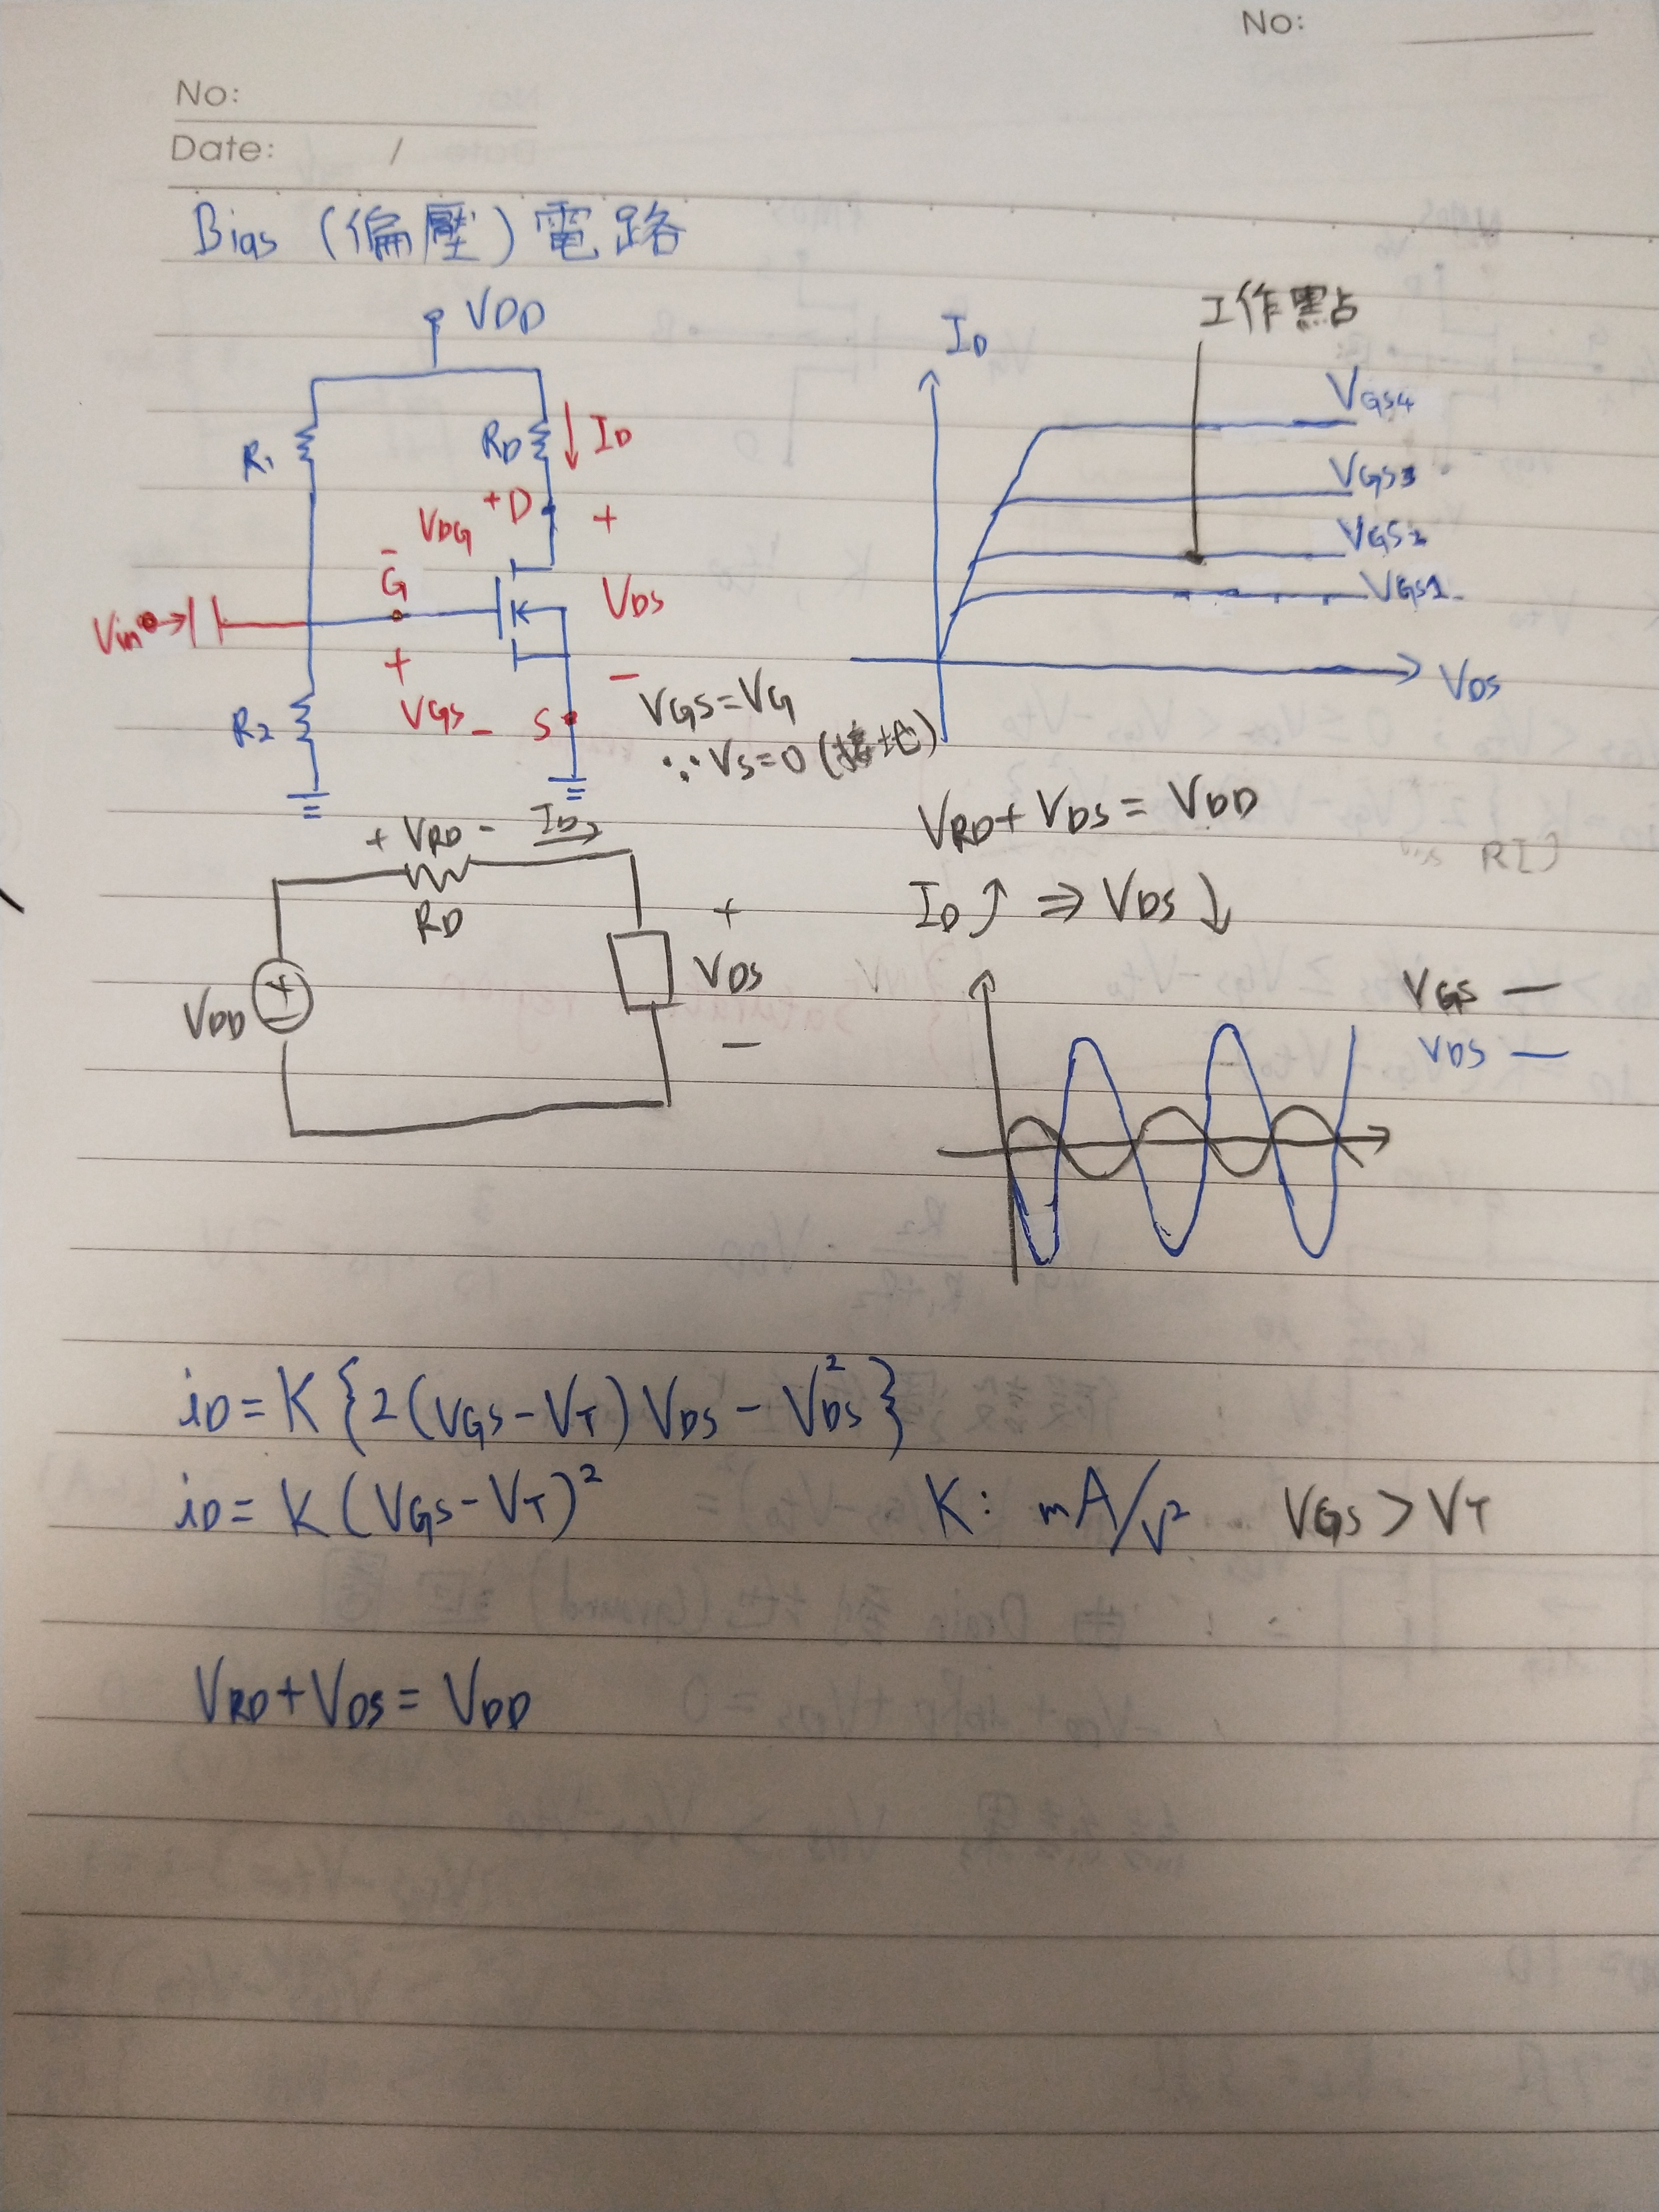 No:
No:
Date: /
Bias (偏壓) 電路
VDD
R1
RD
ID
VDG
+
D
+
-
G
Vin
VDS
+
VGS
-
S
-
R2
VGS=VG
∵VS=0 (接地)
ID
工作點
VGS4
VGS3
VGS2
VGS1
VDS
+ VRD -
ID
RD
VDD
+
-
+
VDS
-
VRD+VDS=VDD
ID↑ ⇒ VDS↓
VGS —
VDS —
iD=K{2(VGS-VT)VDS-VDS²}
iD=K(VGS-VT)² K: mA/V² VGS>VT
VRD+VDS=VDD